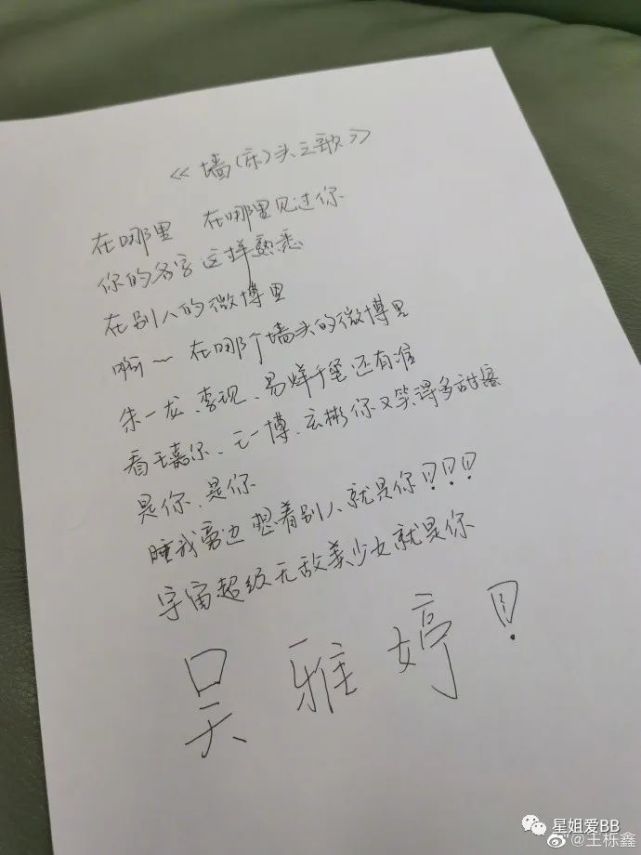 《墙(床)头之歌》
在哪里 在哪里见过你
你的名字这样熟悉
在别人的微博里
啊～在哪个墙头的微博里
朱一龙、李现、易烊千玺还有谁
看王嘉尔、王一博、玄彬你又笑得多甜蜜
是你、是你
睡我旁边想着别人就是你!!!
宇宙超级无敌美少女就是你
吴雅婷!
星姐爱BB
@王栎鑫